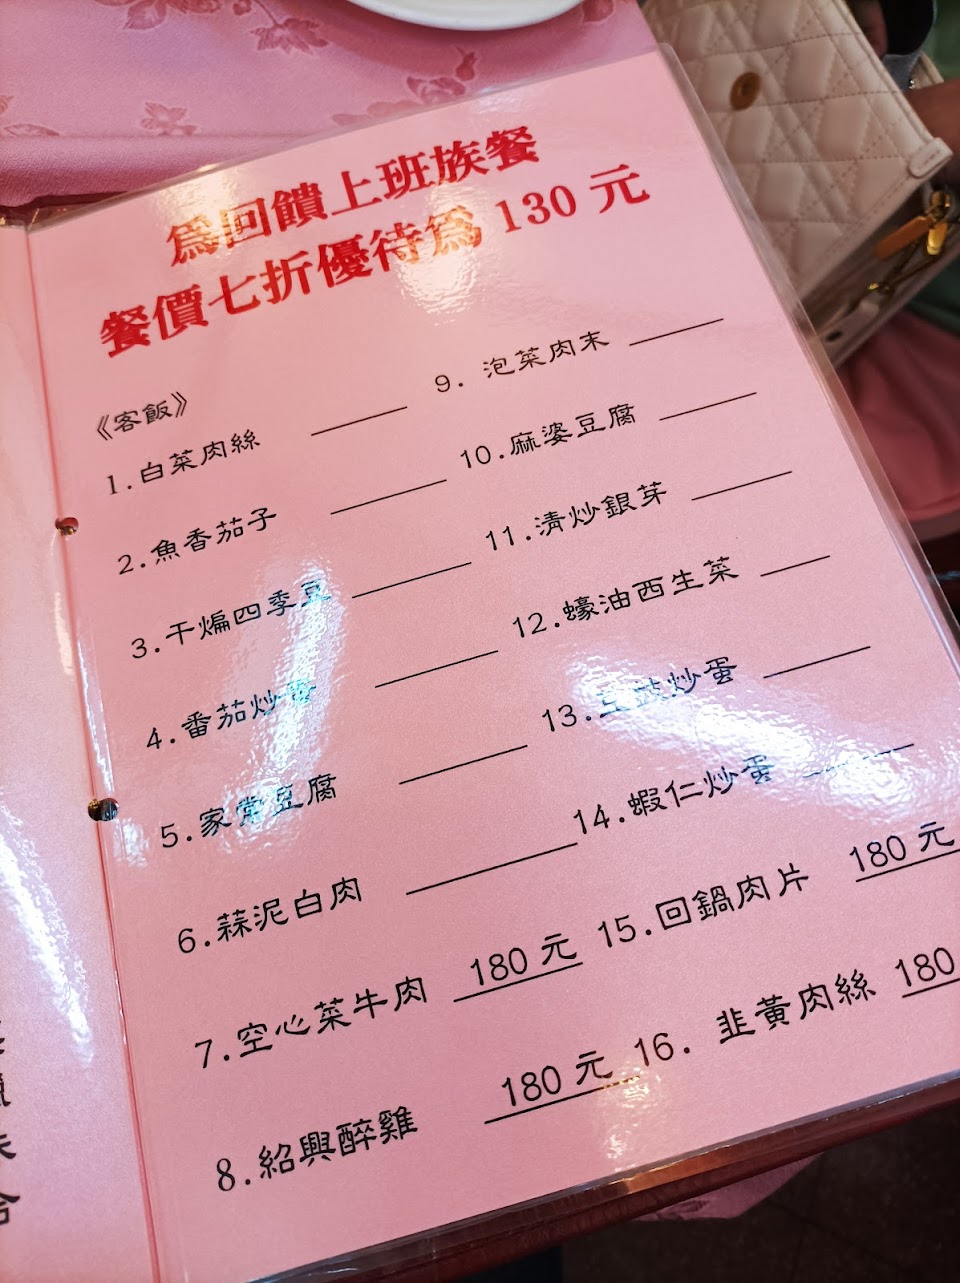 為回饋上班族餐
餐價七折優待為 130 元
《客飯》
1.白菜肉絲
2.魚香茄子
3.干煸四季豆
4.番茄炒蛋
5.家常豆腐
6.蒜泥白肉
7.空心菜牛肉 180 元
8.紹興醉雞 180 元
9. 泡菜肉末
10.麻婆豆腐
11.清炒銀芽
12.蠔油西生菜
13.豆豉炒蛋
14.蝦仁炒蛋
15.回鍋肉片 180 元
16. 韭黃肉絲 180